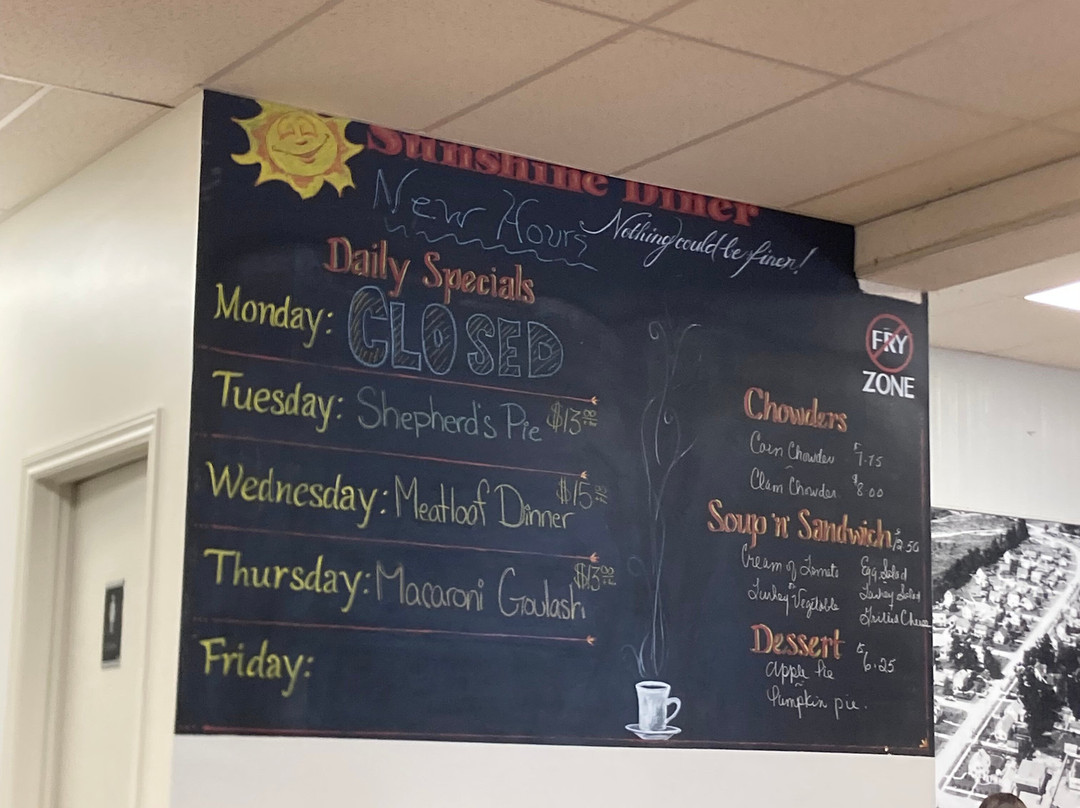 Sunshine Diner
New Hours
Nothing could be finer!
Daily Specials
Monday: CLOSED
Tuesday: Shepherd's Pie $13.00
Wednesday: Meatloaf Dinner $15.00
Thursday: Macaroni Goulash $13.00
Friday:
FRY
ZONE
Chowders
Corn Chowder $7.75
Clam Chowder $8.00
Soup 'n' Sandwich $12.50
Cream of Tomato Egg Salad
Turkey Vegetable Turkey Salad
Grilled Cheese
Dessert $6.25
apple Pie
Pumpkin pie.